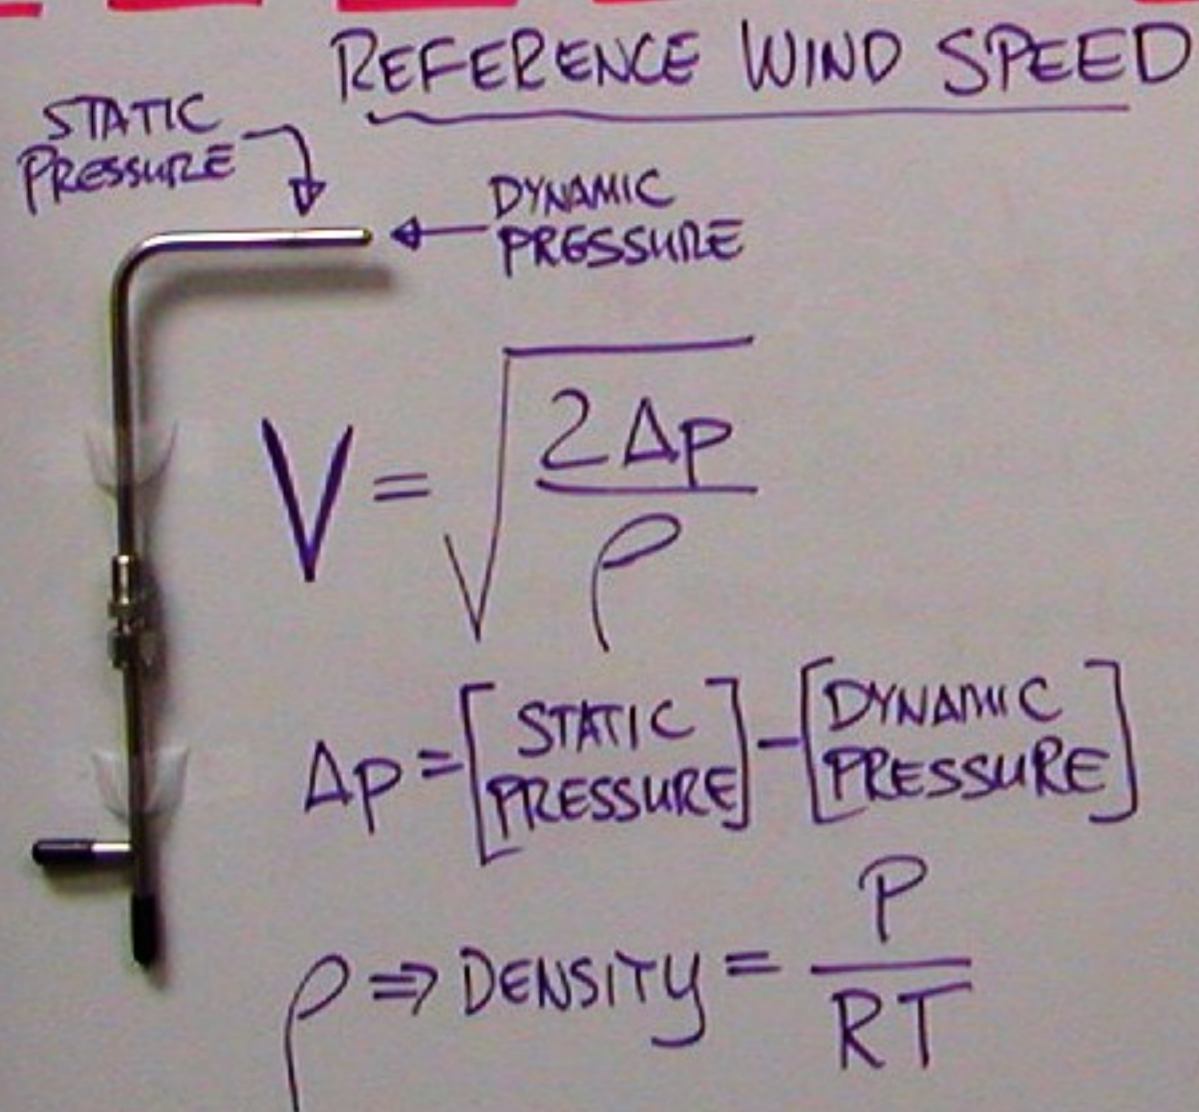 REFERENCE WIND SPEED
STATIC
PRESSURE
DYNAMIC
PRESSURE
V = √(2Δp / ρ)
Δp = [STATIC PRESSURE] - [DYNAMIC PRESSURE]
ρ ⇒ DENSITY = P / RT